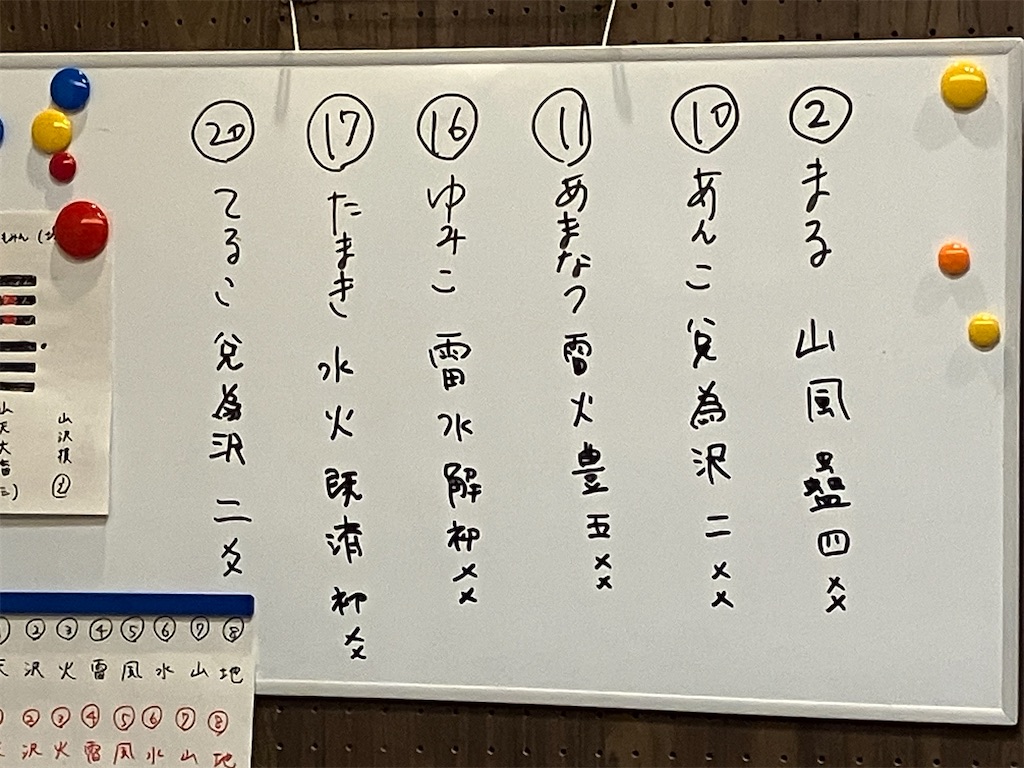 ② まる 山風蠱 四爻
⑩ あんこ 兌為沢 二爻
⑪ あまなつ 雷火豊 五爻
⑯ ゆみこ 雷水解 初爻
⑰ たまき 水火既済 初爻
⑳ てるこ 兌為沢 二爻
山沢損
② ③ ④ ⑤ ⑥ ⑦ ⑧
天 沢 火 雷 風 水 山 地
② ③ ④ ⑤ ⑥ ⑦ ⑧
沢 火 雷 風 水 山 地